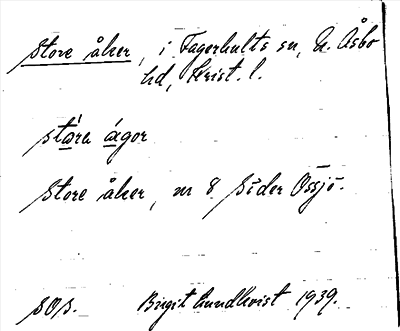 Store åker, i Fagerhults sn, N. Åsbo
hd, Krist. l.
stɑ̀ra ágor
Store åker, nr 8 Söder Össjö.
SOs. Birgit Lundkvist 1939.